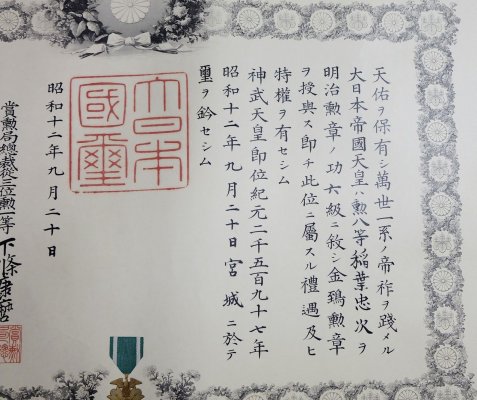 天佑ヲ保有シ萬世一系ノ帝祚ヲ踐メル
大日本帝國天皇ハ勲八等稲葉忠次ヲ
明治勲章ノ功六級ニ敘シ金鵄勲章
ヲ授與ス即チ此位ニ屬スル禮遇及ヒ
特權ヲ有セシム
神武天皇即位紀元二千五百九十七年
昭和十二年九月二十日宮城ニ於テ
璽ヲ鈐セシム
大日本國璽
昭和十二年九月二十日
賞勲局總裁從三位勲一等下條康麿